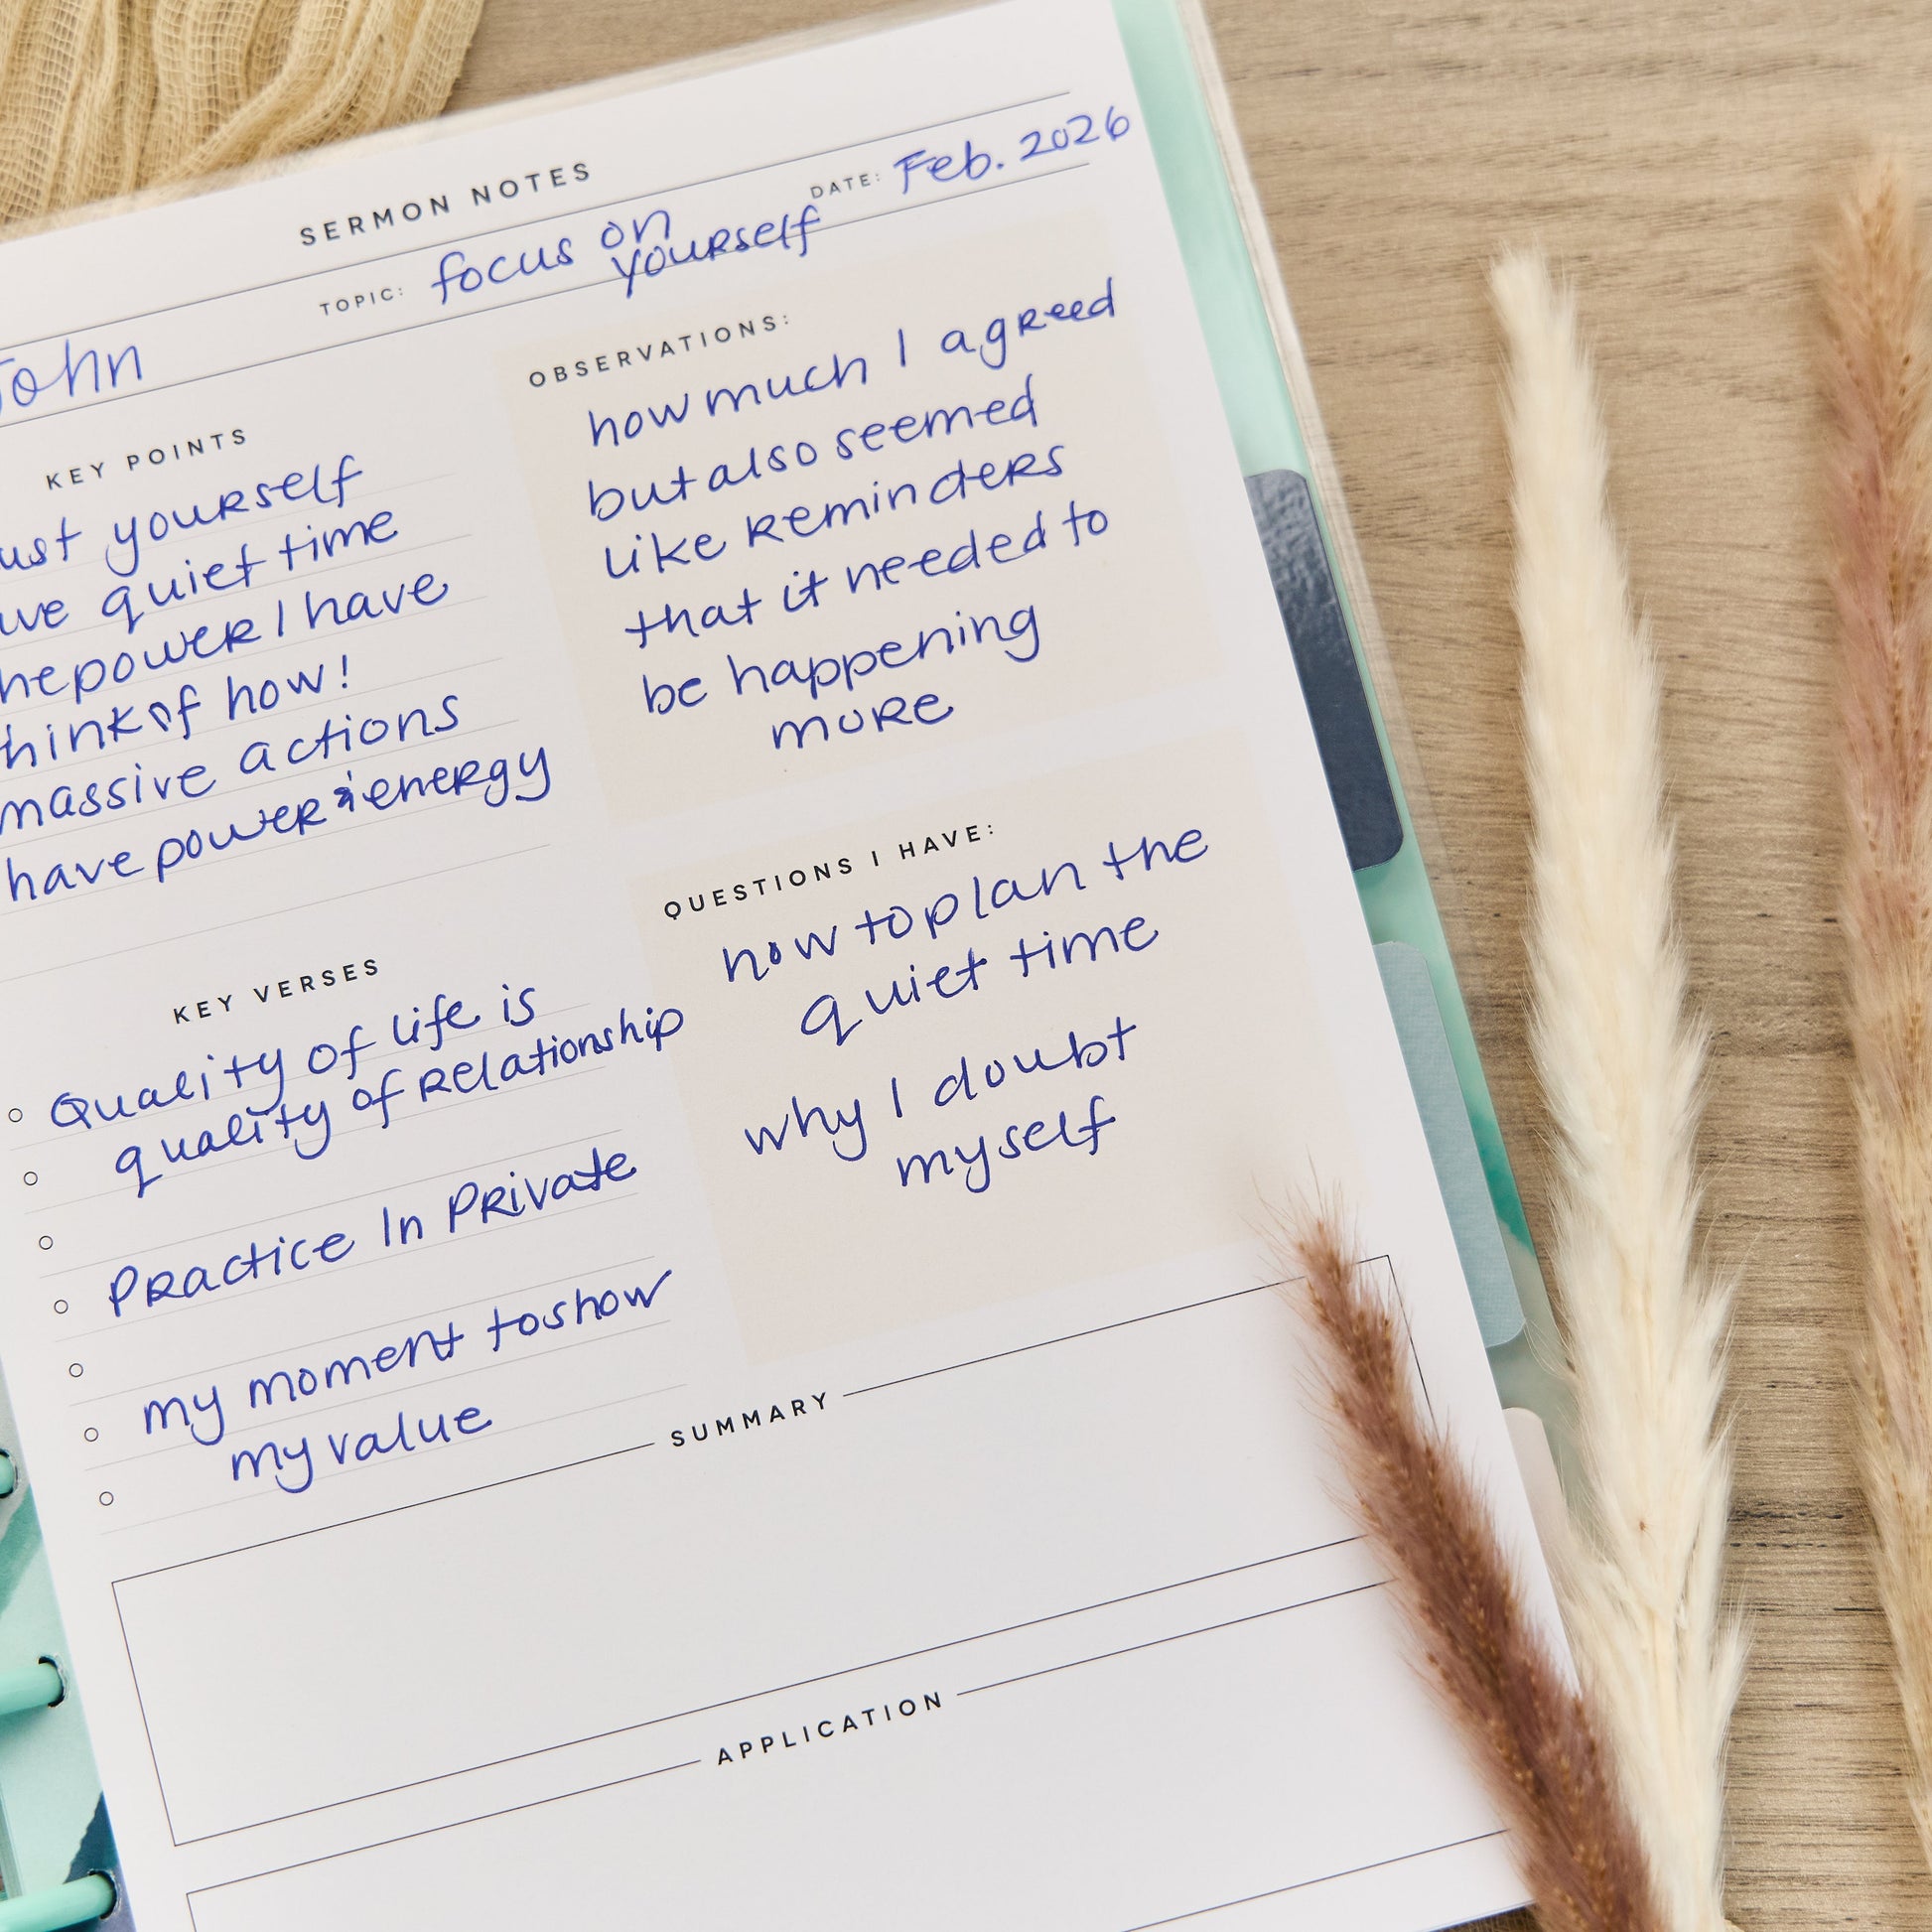 SERMON NOTES
DATE: Feb. 2026
TOPIC: focus on
yourself
John
KEY POINTS
yourself
quiet time
power I have
of how!
massive actions
have power & energy
OBSERVATIONS:
how much I agreed
but also seemed
like reminders
that it needed to
be happening
more
KEY VERSES
Quality of life is
quality of relationship
Practice In Private
my moment to show
my value
QUESTIONS I HAVE:
how to plan the
quiet time
why I doubt
myself
SUMMARY
APPLICATION